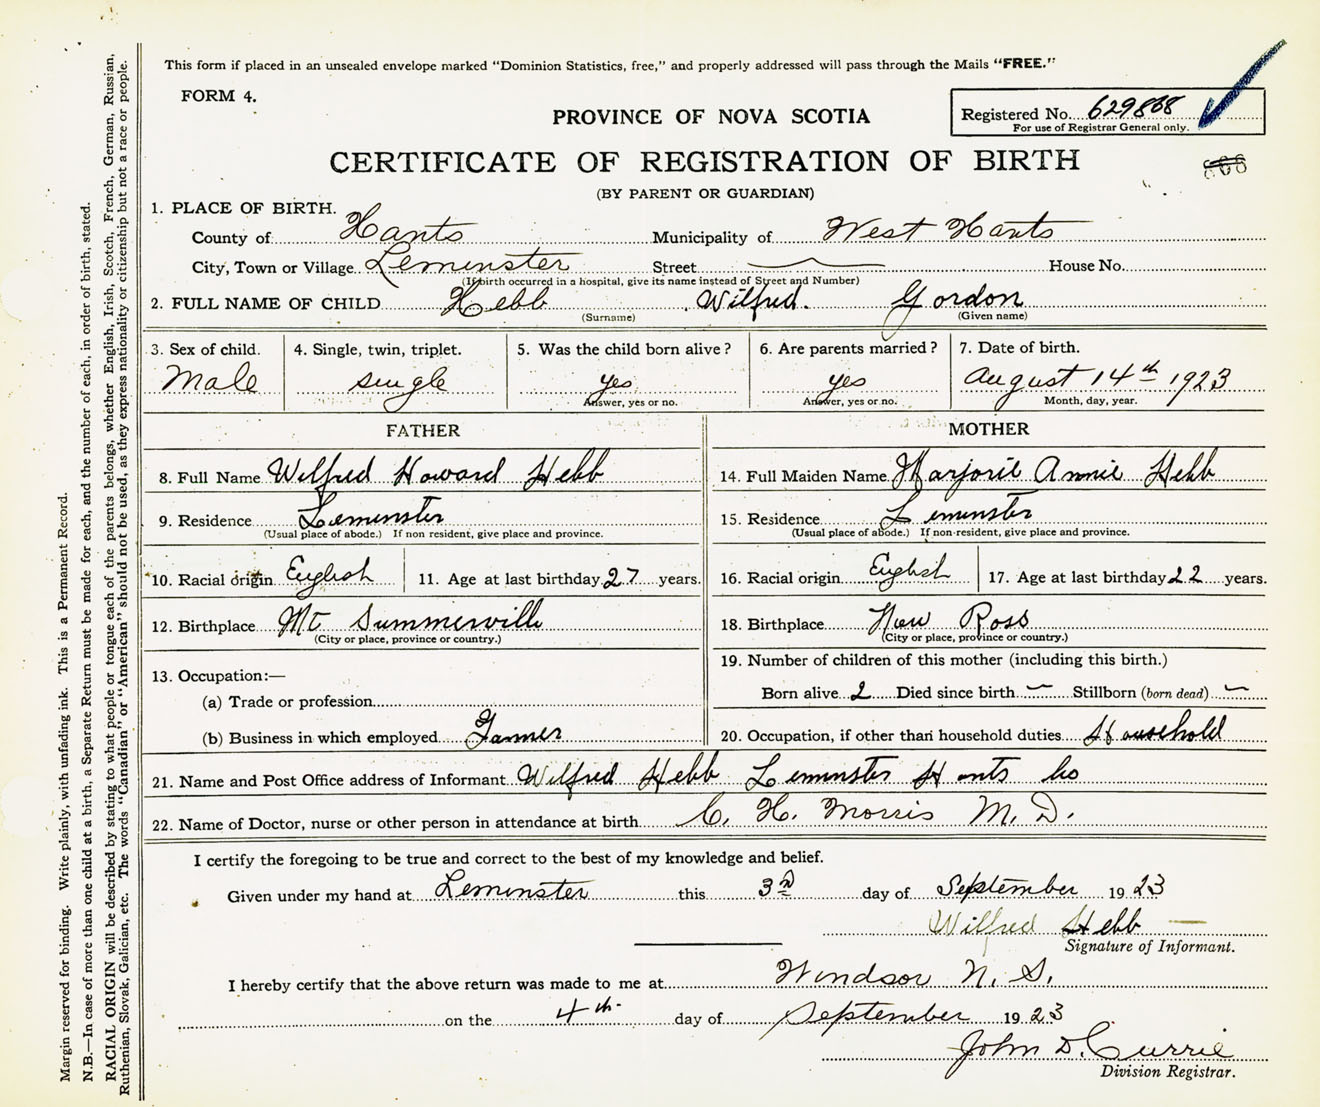 This form if placed in an unsealed envelope marked “Dominion Statistics, free,” and properly addressed will pass through the Mails “FREE.”
FORM 4.
PROVINCE OF NOVA SCOTIA
Registered No. 629868
For use of Registrar General only.
CERTIFICATE OF REGISTRATION OF BIRTH
(BY PARENT OR GUARDIAN)
1. PLACE OF BIRTH.
County of Hants Municipality of West Hants
City, Town or Village Leminster Street House No.
(If birth occurred in a hospital, give its name instead of Street and Number)
2. FULL NAME OF CHILD Hebb Wilfred. Gordon
(Surname) (Given name)
3. Sex of child. 4. Single, twin, triplet. 5. Was the child born alive? 6. Are parents married? 7. Date of birth.
Male single yes yes August 14th 1923
Answer, yes or no. Answer, yes or no. Month, day, year.
FATHER MOTHER
8. Full Name Wilfred Howard Hebb 14. Full Maiden Name Marjorie Annie Hebb
9. Residence Leminster 15. Residence Leminster
(Usual place of abode.) If non resident, give place and province. (Usual place of abode.) If non-resident, give place and province.
10. Racial origin English 11. Age at last birthday 27 years. 16. Racial origin English 17. Age at last birthday 22 years.
12. Birthplace Mt Summerville 18. Birthplace New Ross
(City or place, province or country.) (City or place, province or country.)
13. Occupation:— 19. Number of children of this mother (including this birth.)
(a) Trade or profession Born alive 2 Died since birth — Stillborn (born dead) —
(b) Business in which employed Farmer 20. Occupation, if other than household duties Household
21. Name and Post Office address of Informant Wilfred Hebb Leminster Hants Co
22. Name of Doctor, nurse or other person in attendance at birth C. H. Morris M. D.
I certify the foregoing to be true and correct to the best of my knowledge and belief.
Given under my hand at Leminster this 3rd day of September 1923
Wilfred Hebb
Signature of Informant.
I hereby certify that the above return was made to me at Windsor N. S.
on the 4th day of September 1923
John D. Currie
Division Registrar.
Margin reserved for binding. Write plainly, with unfading ink. This is a Permanent Record.
N.B.—In case of more than one child at a birth, a Separate Return must be made for each, and the number of each, in order of birth, stated.
RACIAL ORIGIN will be described by stating to what people or tongue each of the parents belongs, whether English, Irish, Scotch, French, German, Russian,
Ruthenian, Slovak, Galician, etc. The words “Canadian” or “American” should not be used, as they express nationality or citizenship but not a race or people.